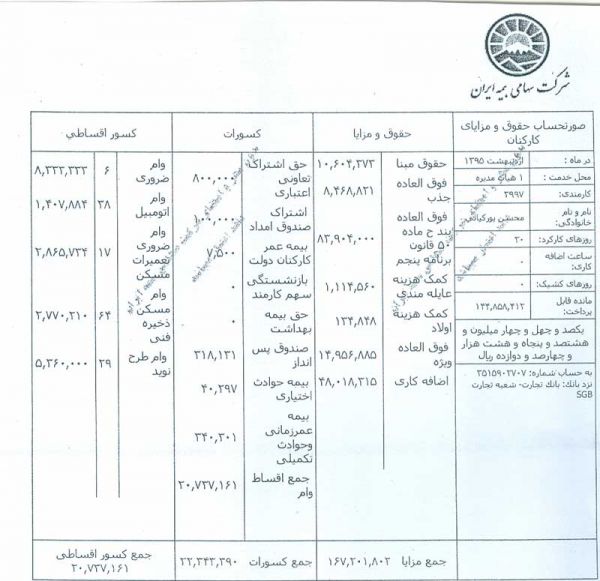 شرکت سهامی بیمه ایران
صورتحساب حقوق و مزایای
کارکنان
در ماه : اردیبهشت ۱۳۹۵
محل خدمت : ۱ هیأت مدیره
کارمندی: ۳۹۹۷
نام و نام
خانوادگی: محسن پورکیانی
روزهای کارکرد: ۳۰
ساعت اضافه
کاری: ۰
روزهای کشیک: ۰
مانده قابل
پرداخت: ۱۴۴,۸۵۸,۴۱۲
یکصد و چهل و چهار میلیون و
هشتصد و پنجاه و هشت هزار
و چهارصد و دوازده ریال
به حساب شماره: ۳۵۱۵۹۰۲۷۰۷
نزد بانك: بانك تجارت- شعبه تجارت
SGB
حقوق و مزایا
حقوق مبنا ۱۰,۶۰۴,۳۷۳
فوق العاده
جذب ۸,۴۶۸,۸۲۱
فوق العاده
بند ح ماده
۵۰ قانون
برنامه پنجم ۸۳,۹۰۴,۰۰۰
کمک هزینه
عایله مندی ۱,۱۱۴,۵۶۰
کمک هزینه
اولاد ۱۳۴,۸۴۸
فوق العاده
ویژه ۱۴,۹۵۶,۸۸۵
اضافه کاری ۴۸,۰۱۸,۳۱۵
جمع مزایا ۱۶۷,۲۰۱,۸۰۲
کسورات
حق اشتراک
تعاونی
اعتباری ۸۰۰,۰۰۰
اشتراک
صندوق امداد
بیمه عمر
کارکنان دولت ۷,۵۰۰
بازنشستگی
سهم کارمند ۰
حق بیمه
بهداشت ۰
صندوق پس
انداز ۳۱۸,۱۳۱
بیمه حوادث
اختیاری ۴۰,۲۹۷
بیمه
عمرزمانی
وحوادث
تکمیلی ۳۴۰,۳۰۱
جمع اقساط
وام ۲۰,۷۳۷,۱۶۱
جمع کسورات ۲۲,۳۴۳,۳۹۰
کسور اقساطي
وام
ضروری ۶ ۸,۳۳۳,۳۳۳
وام
اتومبیل ۳۸ ۱,۴۰۷,۸۸۴
وام
ضروری
تعمیرات
مسکن ۱۷ ۲,۸۶۵,۷۳۴
وام
مسکن
ذخیره
فنی ۶۴ ۲,۷۷۰,۲۱۰
وام طرح
نوید ۲۹ ۵,۳۶۰,۰۰۰
جمع کسور اقساطی
۲۰,۷۳۷,۱۶۱